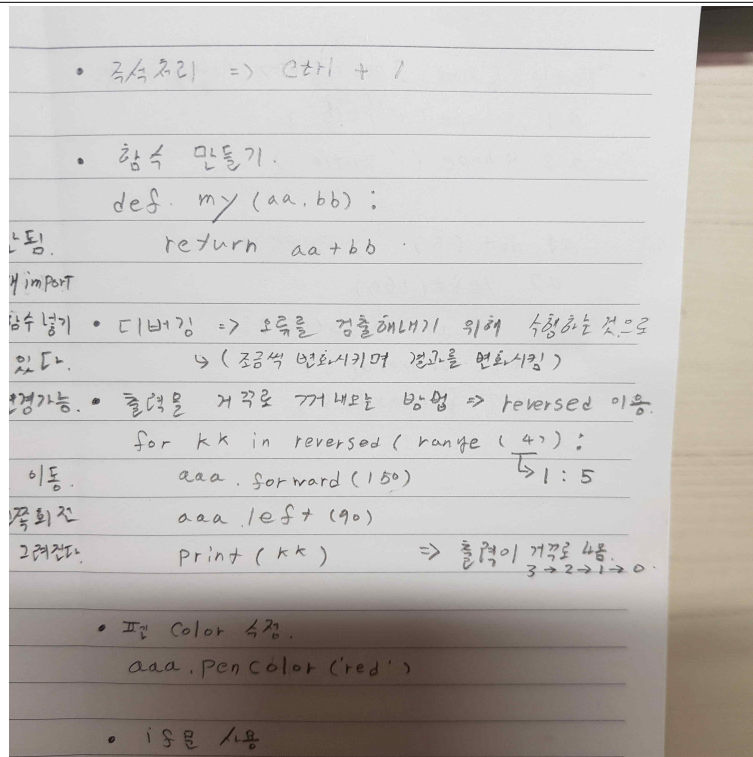 • 주석처리 => Ctrl + /
• 함수 만들기.
def. my (aa, bb) :
안됨. return aa+bb
import
함수넣기 • 디버깅 => 오류를 검출해내기 위해 수행하는 것으로
있다. ↳ (조금씩 변화시키며 결과를 변화시킴)
변경가능. • 출력물 거꾸로 꺼내오는 방법 => reversed 이용.
for kk in reversed ( range ( 4 ) ) :
이동. aaa. forward (150) ↳ 1 : 5
쪽회전 aaa. left (90)
그려진다. print (kk) => 출력이 거꾸로 4옴.
3 → 2 → 1 → 0.
• 펜 Color 수정.
aaa. pen color ('red')
• if문 사용